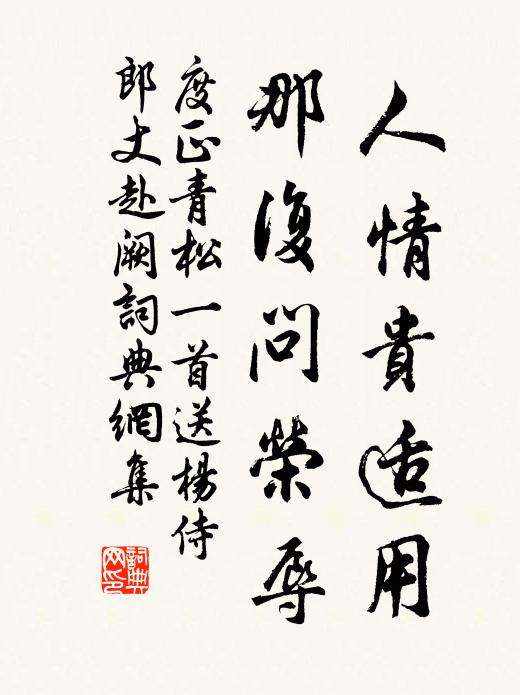 人情貴适用
那復問榮辱
度正青松一首送楊侍
郎丈赴闕詞典網集
詞典網印